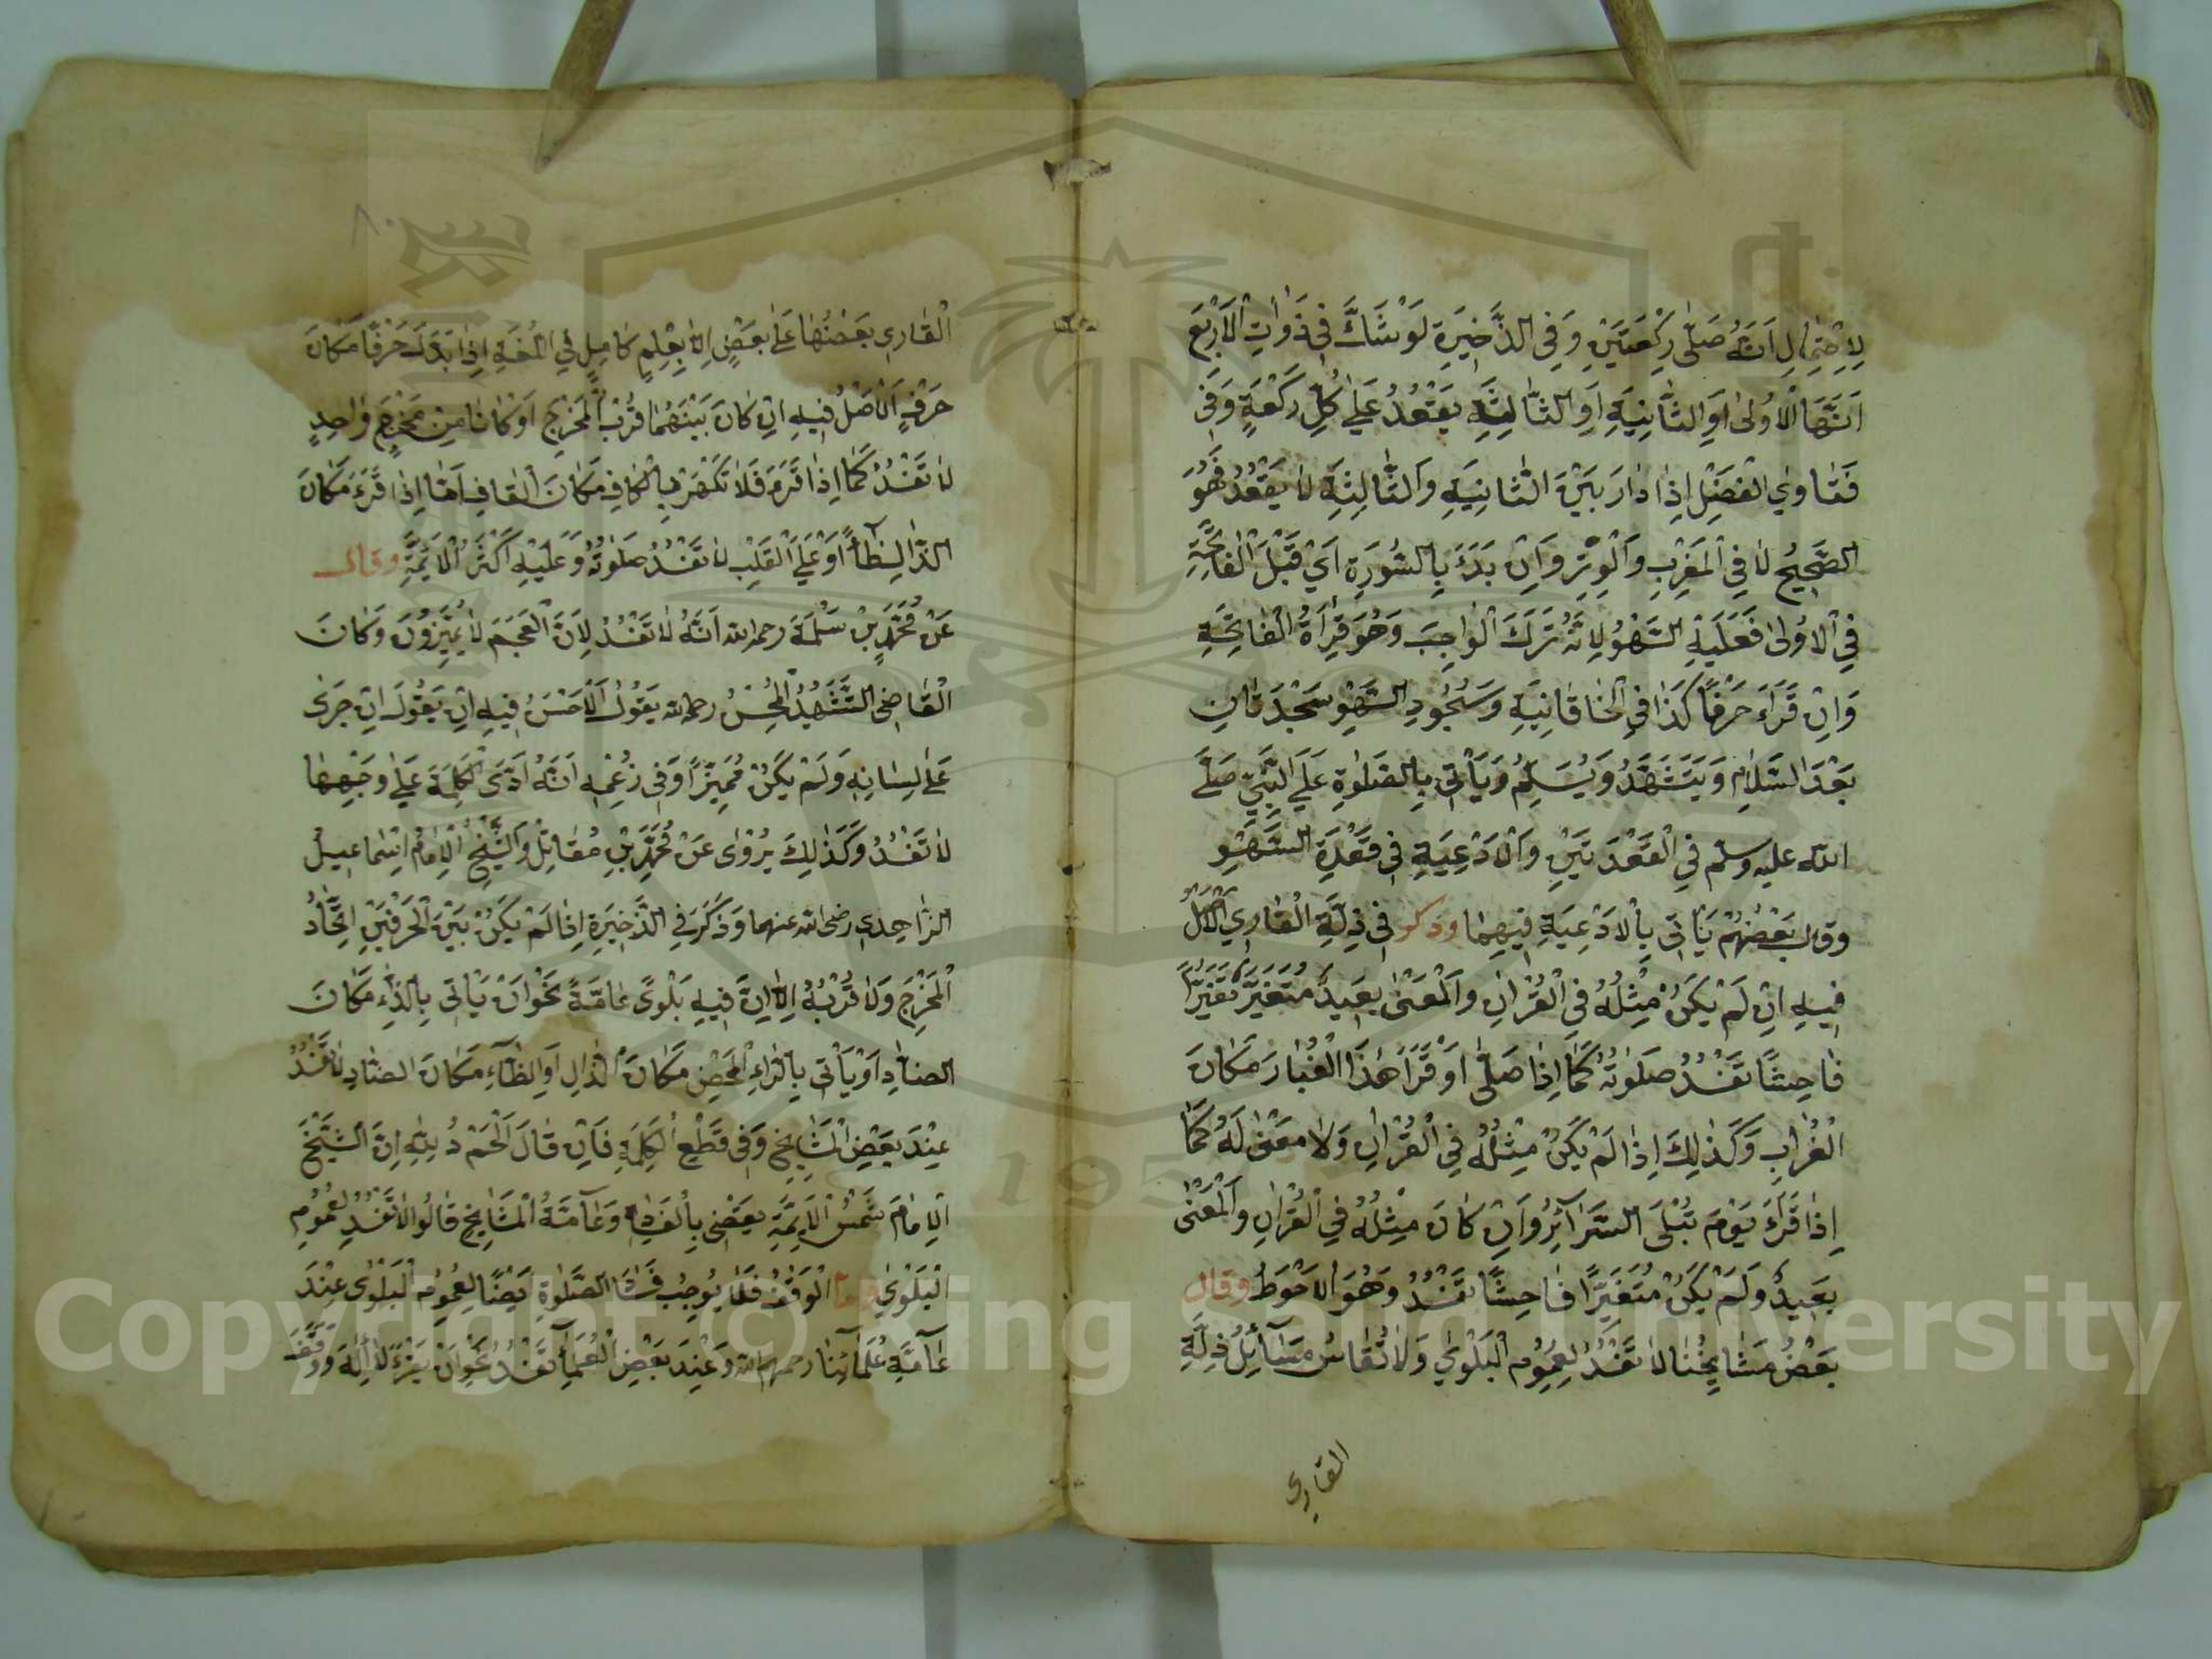 لِاِحْتِمَالِ اَنَّهُ صَلَّى رَكْعَتَيْنِ وَفِي الذَّخِيرَةِ لَوْ شَكَّ فِي ذَوَاتِ الْاَرْبَعِ
اَنَّهَا الْاُولٰى اَوِ الثَّانِيَةِ اَوِ الثَّالِثَةِ يَقْعُدُ عَلٰي كُلِّ رَكْعَةٍ وَفِي
فَتَاوِي الْفَضْلِ اِذَا دَارَ بَيْنَ الثَّانِيَةِ وَالثَّالِثَةِ لَا يَقْعُدُ هُوَ
الصَّحِيحُ لَا فِي الْمَغْرِبِ وَالْوِتْرِ وَاِنْ بَدَءَ بِالسُّورَةِ اَيْ قَبْلَ الْفَاتِحَةِ
فِي الْاُولٰى فَعَلَيْهِ السَّهْوُ لِاَنَّهُ تَرَكَ الْوَاجِبَ وَهُوَ قِرَاءَةُ الْفَاتِحَةِ
وَاِنْ قَرَاءَ حَرْفًا كَذَا فِي الْخَاقَانِيَةِ وَسُجُودِ السَّهْوِ سَجْدَتَانِ
بَعْدَ السَّلَامِ وَيَتَشَهَّدُ وَيُسَلِّمُ وَيَأْتِي بِالصَّلٰوةِ عَلَى النَّبِيِّ صَلَّى
الله عليه وسلم فِي الْقَعْدَتَيْنِ وَالْاَدْعِيَةِ فِي قَعْدَةِ السَّهْوِ
وقال بَعْضُهُمْ يَأْتِي بِالْاَدْعِيَةِ فِيهِمَا وذكر فِي زِلَّةِ الْقَارِي الْاَصْلُ
فِيهِ اِنْ لَمْ يَكُنْ مِثْلُهُ فِي الْقُرْاٰنِ وَالْمَعْنٰى بَعِيدٌ مُتَغَيِّرٌ تَغَيُّرًا
فَاحِشًا تَفْسُدُ صَلٰوتُهُ كَمَا اِذَا صَلّٰى اَوْ قَرَاَ هٰذَا الْغُبَارَ مَكَانَ
الْغُرَابِ وَكَذٰلِكَ اِذَا لَمْ يَكُنْ مِثْلُهُ فِي الْقُرْاٰنِ وَلَا مَعْنٰى لَهُ كَمَا
اِذَا قَرَءَ يَوْمَ تُبْلَى السَّرَآئِرُ وَاِنْ كَانَ مِثْلُهُ فِي الْقُرْاٰنِ وَالْمَعْنٰى
بَعِيدٌ وَلَمْ يَكُنْ مُتَغَيِّرًا فَاحِشًا تَفْسُدُ وَهُوَ الْاَحْوَطُ وقال
بَعْضُ مَشَايِخِنَا لَا تَفْسُدُ لِعُمُومِ الْبَلْوٰي وَلَا تُقَاسُ مَسَآئِلُ زِلَّةِ
القاري
الْقَارِي بَعْضُهَا عَلٰى بَعْضٍ اِلَّا بِعِلْمٍ كَامِلٍ فِي اللُّغَةِ اِذَا بَدَّلَ حَرْفًا مَكَانَ
حَرْفٍ اَلْاَصْلُ فِيهِ اِنْ كَانَ بَيْنَهُمَا قُرْبُ الْمَخْرَجِ اَوْ كَانَا مِنْ مَخْرَجٍ وَاحِدٍ
لَا تَفْسُدُ كَمَا اِذَا قَرَءَ فَلَا تَكْهَرْ بِالْكَافِ مَكَانَ الْقَافِ اَمَّا اِذَا قَرَءَ مَكَانَ
الذَّالِ ظَآءً اَوْ عَلَي الْقَلْبِ لَا تَفْسُدُ صَلٰوتُهُ وَعَلَيْهِ اَكْثَرُ الْاَئِمَّةِ وقال
عَنْ مُحَمَّدِ بْنِ سَلَمَةَ رحمه الله اَنَّهُ لَا تَفْسُدُ لِاَنَّ الْعَجَمَ لَا يُمَيِّزُونَ وَكَانَ
الْقَاضِي الشَّهِيدُ الْمُحْسِنُ رحمه الله يَقُولُ الْاَحْسَنُ فِيهِ اِنْ يَقُولَ اِنْ جَرٰى
عَلٰى لِسَانِهِ وَلَمْ يَكُنْ مُمَيِّزًا وَفِي زُعْمِهِ اَنَّهُ اَدَّى الْكَلِمَةَ عَلٰي وَجْهِهَا
لَا تَفْسُدُ وَكَذٰلِكَ يُرْوٰى عَنْ مُحَمَّدِ بْنِ مُقَاتِلٍ وَالشَّيْخِ الْاِمَامِ اِسْمَاعِيلُ
الزَّاهِدِي رضى الله عنهما وَذُكِرَ فِي الذَّخِيرَةِ اِذَا لَمْ يَكُنْ بَيْنَ الْحَرْفَيْنِ اِتِّحَادُ
الْمَخْرَجِ وَلَا قُرْبُهُ اِلَّا اِنَّ فِيهِ بَلْوًى عَامَّةً نَحْوَ اَنْ يَأْتِيَ بِالذَّالِ مَكَانَ
الضَّادِ اَوْ يَأْتِيَ بِالزَّاءِ الْمَحْضِ مَكَانَ الذَّالِ اَوِ الظَّآءِ مَكَانَ الضَّادِ لَا تَفْسُدُ
عِنْدَ بَعْضِ الْمَشَايِخِ وَفِي قَطْعِ الْكَلِمَةِ فَاِنْ قَالَ اَلْحَمْ دُ لِلّٰهِ اِنَّ الشَّيْخَ
الْاِمَامَ شَمْسُ الْاَئِمَّةِ يَقْضِي بِالْفَسَادِ وَعَآمَّةُ الْمَشَايِخِ قَالُوا لَا تَفْسُدُ لِعُمُومِ
الْبَلْوٰي واما الْوَقْفُ فَلَا يُوجِبُ فَسَادَ الصَّلٰوةِ اَيْضًا لِعُمُومِ الْبَلْوٰى عِنْدَ
عَآمَّةِ عُلَمَآئِنَا رحمهم الله وَعِنْدَ بَعْضِ الْعُلَمَآءِ تَفْسُدُ نَحْوَ اَنْ يَقْرَءَ لَا اِلٰهَ وَوَقَفَ
Copyright © King Saud University
1957